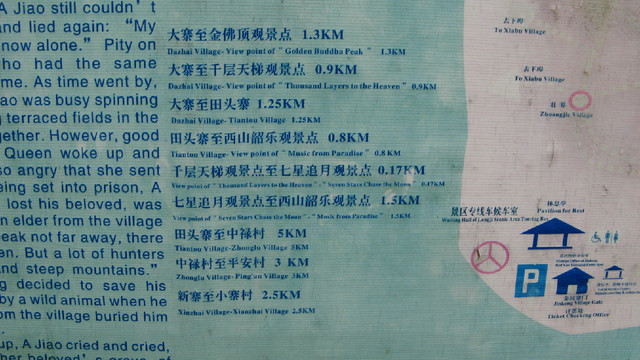 A Jiao still couldn't
and lied again: "My
now alone." Pity on
ho had the same
me. As time went by,
ao was busy spinning
g terraced fields in the
gether. However, good
Queen woke up and
so angry that she sent
eing set into prison, A
lost his beloved, was
n elder from the village
eak not far away, there
en. But a lot of hunters
and steep mountains."
g decided to save his
by a wild animal when he
om the village buried him
up, A Jiao cried and cried,
大寨至金佛顶观景点 1.3KM
Dazhai Village- View point of "Golden Buddha Peak" 1.3KM
大寨至千层天梯观景点 0.9KM
Dazhai Village- View point of "Thousand Layers to the Heaven" 0.9KM
大寨至田头寨 1.25KM
Dazhai Village- Tiantou Village 1.25KM
田头寨至西山韶乐观景点 0.8KM
Tiantou Village- View point of "Music from Paradise" 0.8 KM
千层天梯观景点至七星追月观景点 0.17KM
View point of "Thousand Layers to the Heaven"-"Seven Stars Chase the Moon" 0.17KM
七星追月观景点至西山韶乐观景点 1.5KM
View point of "Seven Stars Chase the Moon"-"Music from Paradise" 1.5KM
田头寨至中禄村 5KM
Tiantou Village-Zhonglu Village 5KM
中禄村至平安村 3 KM
Zhonglu Village-Ping'an Village 3KM
新寨至小寨村 2.5KM
Xinzhai Village-Xianzhai Village 2.5KM
去下埠
To Xiabu Village
去下埠
To Xiabu Village
壮界
Zhuangjie Village
景区专线车候车室
Waiting Hall of Longji Scenic Area Touring Bus
休息亭
Pavilion for Rest
P
金坑寨门
Jinkeng Village Gate
计票处
Ticket Checking Office